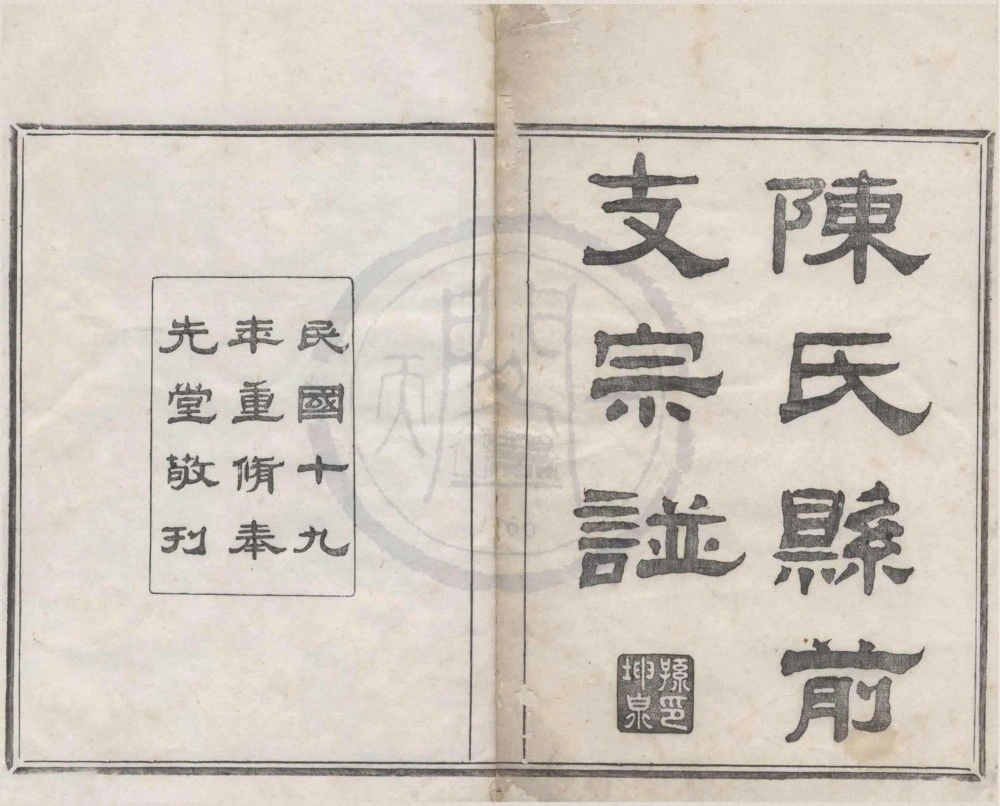 陳氏縣前
支宗諩
孫印
坤泉
民國十九
年重脩奉
先堂敬刊